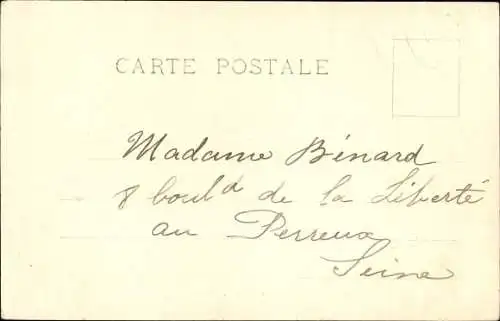 CARTE POSTALE
Madame Bénard
8 boul^d de la Liberté
au Perreux
Seine